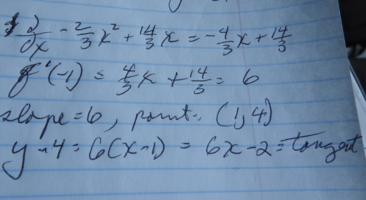 ∂/∂x -2/3 x² + 14/3 x = -4/3 x + 14/3
f'(-1) = 4/3 x + 14/3 = 6
slope = 6, point: (1,4)
y - 4 = 6(x-1) = 6x - 2 = tangent